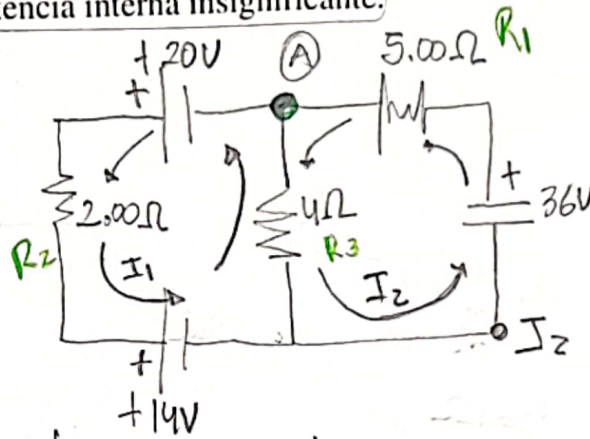 tencia interna insignificante.
+ 20V
A
5.00Ω R1
+
2.00Ω
R2
I1
4Ω
R3
I2
+
36V
I2
+
+14V